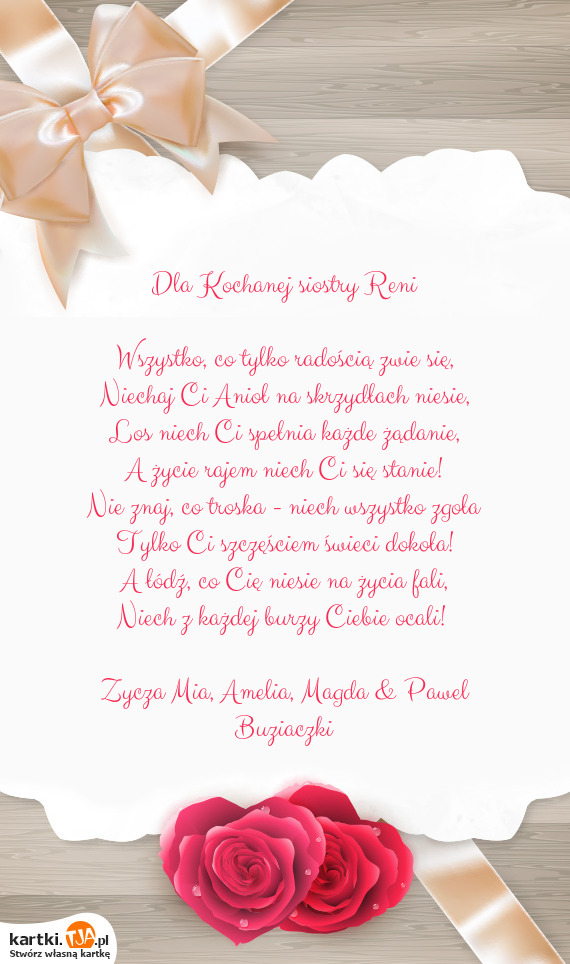 Dla Kochanej siostry Reni
Wszystko, co tylko radością zwie się,
Niechaj Ci Anioł na skrzydłach niesie,
Los niech Ci spełnia każde żądanie,
A życie rajem niech Ci się stanie!
Nie znaj, co troska - niech wszystko zgoła
Tylko Ci szczęściem świeci dokoła!
A łódź, co Cię niesie na życia fali,
Niech z każdej burzy Ciebie ocali!
Zycza Mia, Amelia, Magda & Pawel
Buziaczki
kartki.TJA.pl
Stwórz własną kartkę